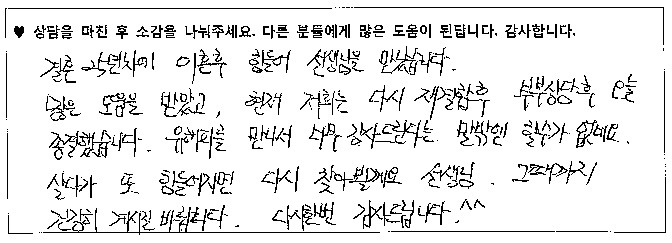 ♥ 상담을 마친 후 소감을 나눠주세요. 다른 분들에게 많은 도움이 된답니다. 감사합니다.
결혼 작년차에 이혼후 힘들어 선생님을 만났습니다.
많은 도움을 받았고, 현재 저희는 다시 재결합후 부부상담후 오늘
종결했습니다. 만나서 너무 감사드린다는 말밖엔 할수가 없네요.
살다가 또 힘들어지면 다시 찾아뵐게요 선생님. 그때까지
건강히 계시길 바랍니다. 다시한번 감사드립니다.^^